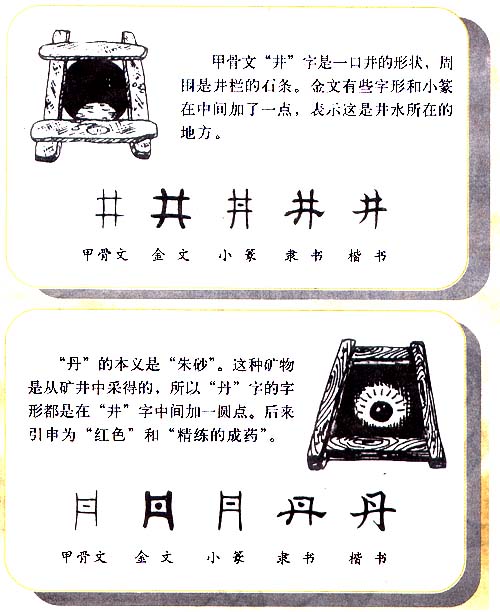 甲骨文“井”字是一口井的形状，周
围是井栏的石条。金文有些字形和小篆
在中间加了一点，表示这是井水所在的
地方。
井 井 井 井 井
甲骨文 金文 小篆 隶书 楷书
“丹”的本义是“朱砂”。这种矿物
是从矿井中采得的，所以“丹”字的字
形都是在“井”字中间加一圆点。后来
引申为“红色”和“精练的成药”。
丹 丹 丹 丹 丹
甲骨文 金文 小篆 隶书 楷书